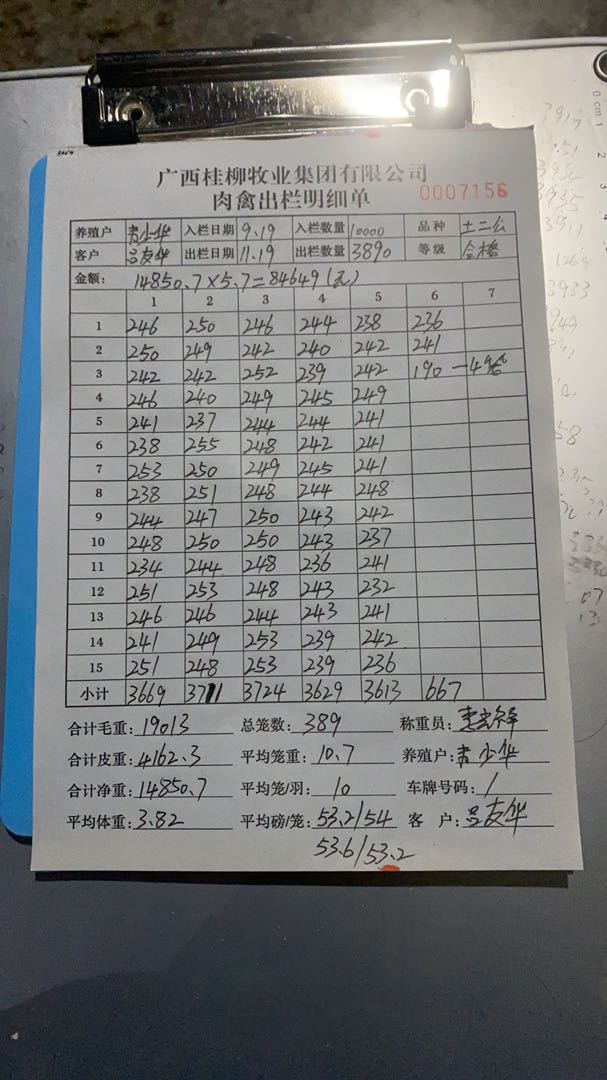 广西桂柳牧业集团有限公司
肉禽出栏明细单 0007156
养殖户 青少华 入栏日期 9.19 入栏数量 10000 品种 土二公
客户 吕友华 出栏日期 11.19 出栏数量 3890 等级 合格
金额: 14850.7×5.7=84649(元)
1 2 3 4 5 6 7
1 246 250 246 244 238 236
2 250 249 242 240 242 241
3 242 242 252 239 242 190 -4笼
4 246 240 249 245 249
5 241 237 244 244 241
6 238 255 248 242 241
7 253 250 249 245 241
8 238 251 248 244 248
9 244 247 250 243 242
10 248 250 250 243 237
11 234 244 248 236 241
12 251 253 248 243 232
13 246 246 244 243 241
14 241 249 253 239 242
15 251 248 253 239 236
小计 3669 3711 3724 3629 3613 667
合计毛重: 19013 总笼数: 389 称重员:
合计皮重: 4162.3 平均笼重: 10.7 养殖户: 青少华
合计净重: 14850.7 平均笼/羽: 10 车牌号码: /
平均体重: 3.82 平均磅/笼: 53.2/54 客 户: 吕友华
53.6/53.2